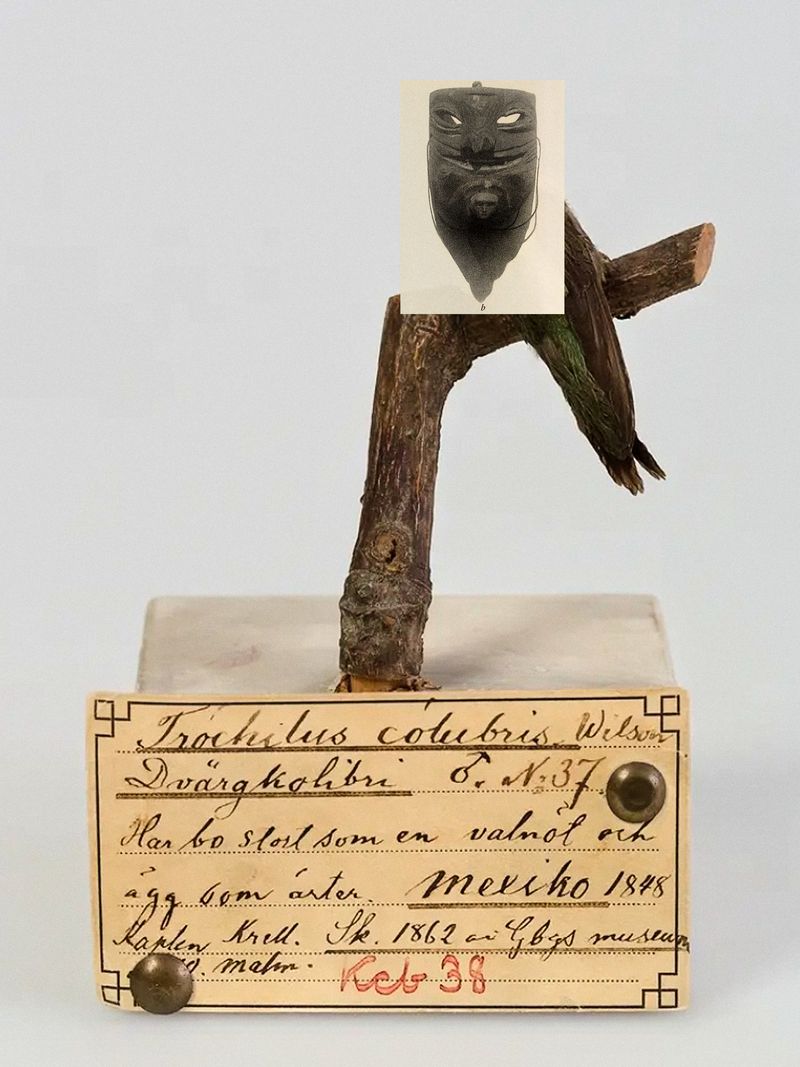 b
Tròchilus cólubris. Wilson
Dvärgkolibri ♂. No 37.
Har bo stort som en valnöt och
ägg som ärter. Mexiko 1848
Kapten Krell. Sk. 1862 av Gbgs museum
malm.
Kcb 38